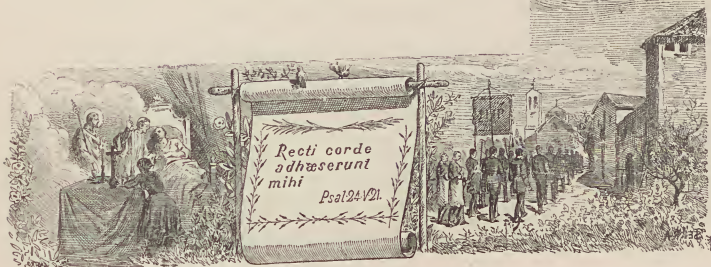 Recti corde
adhæserunt
mihi
Psal 24 V 21.